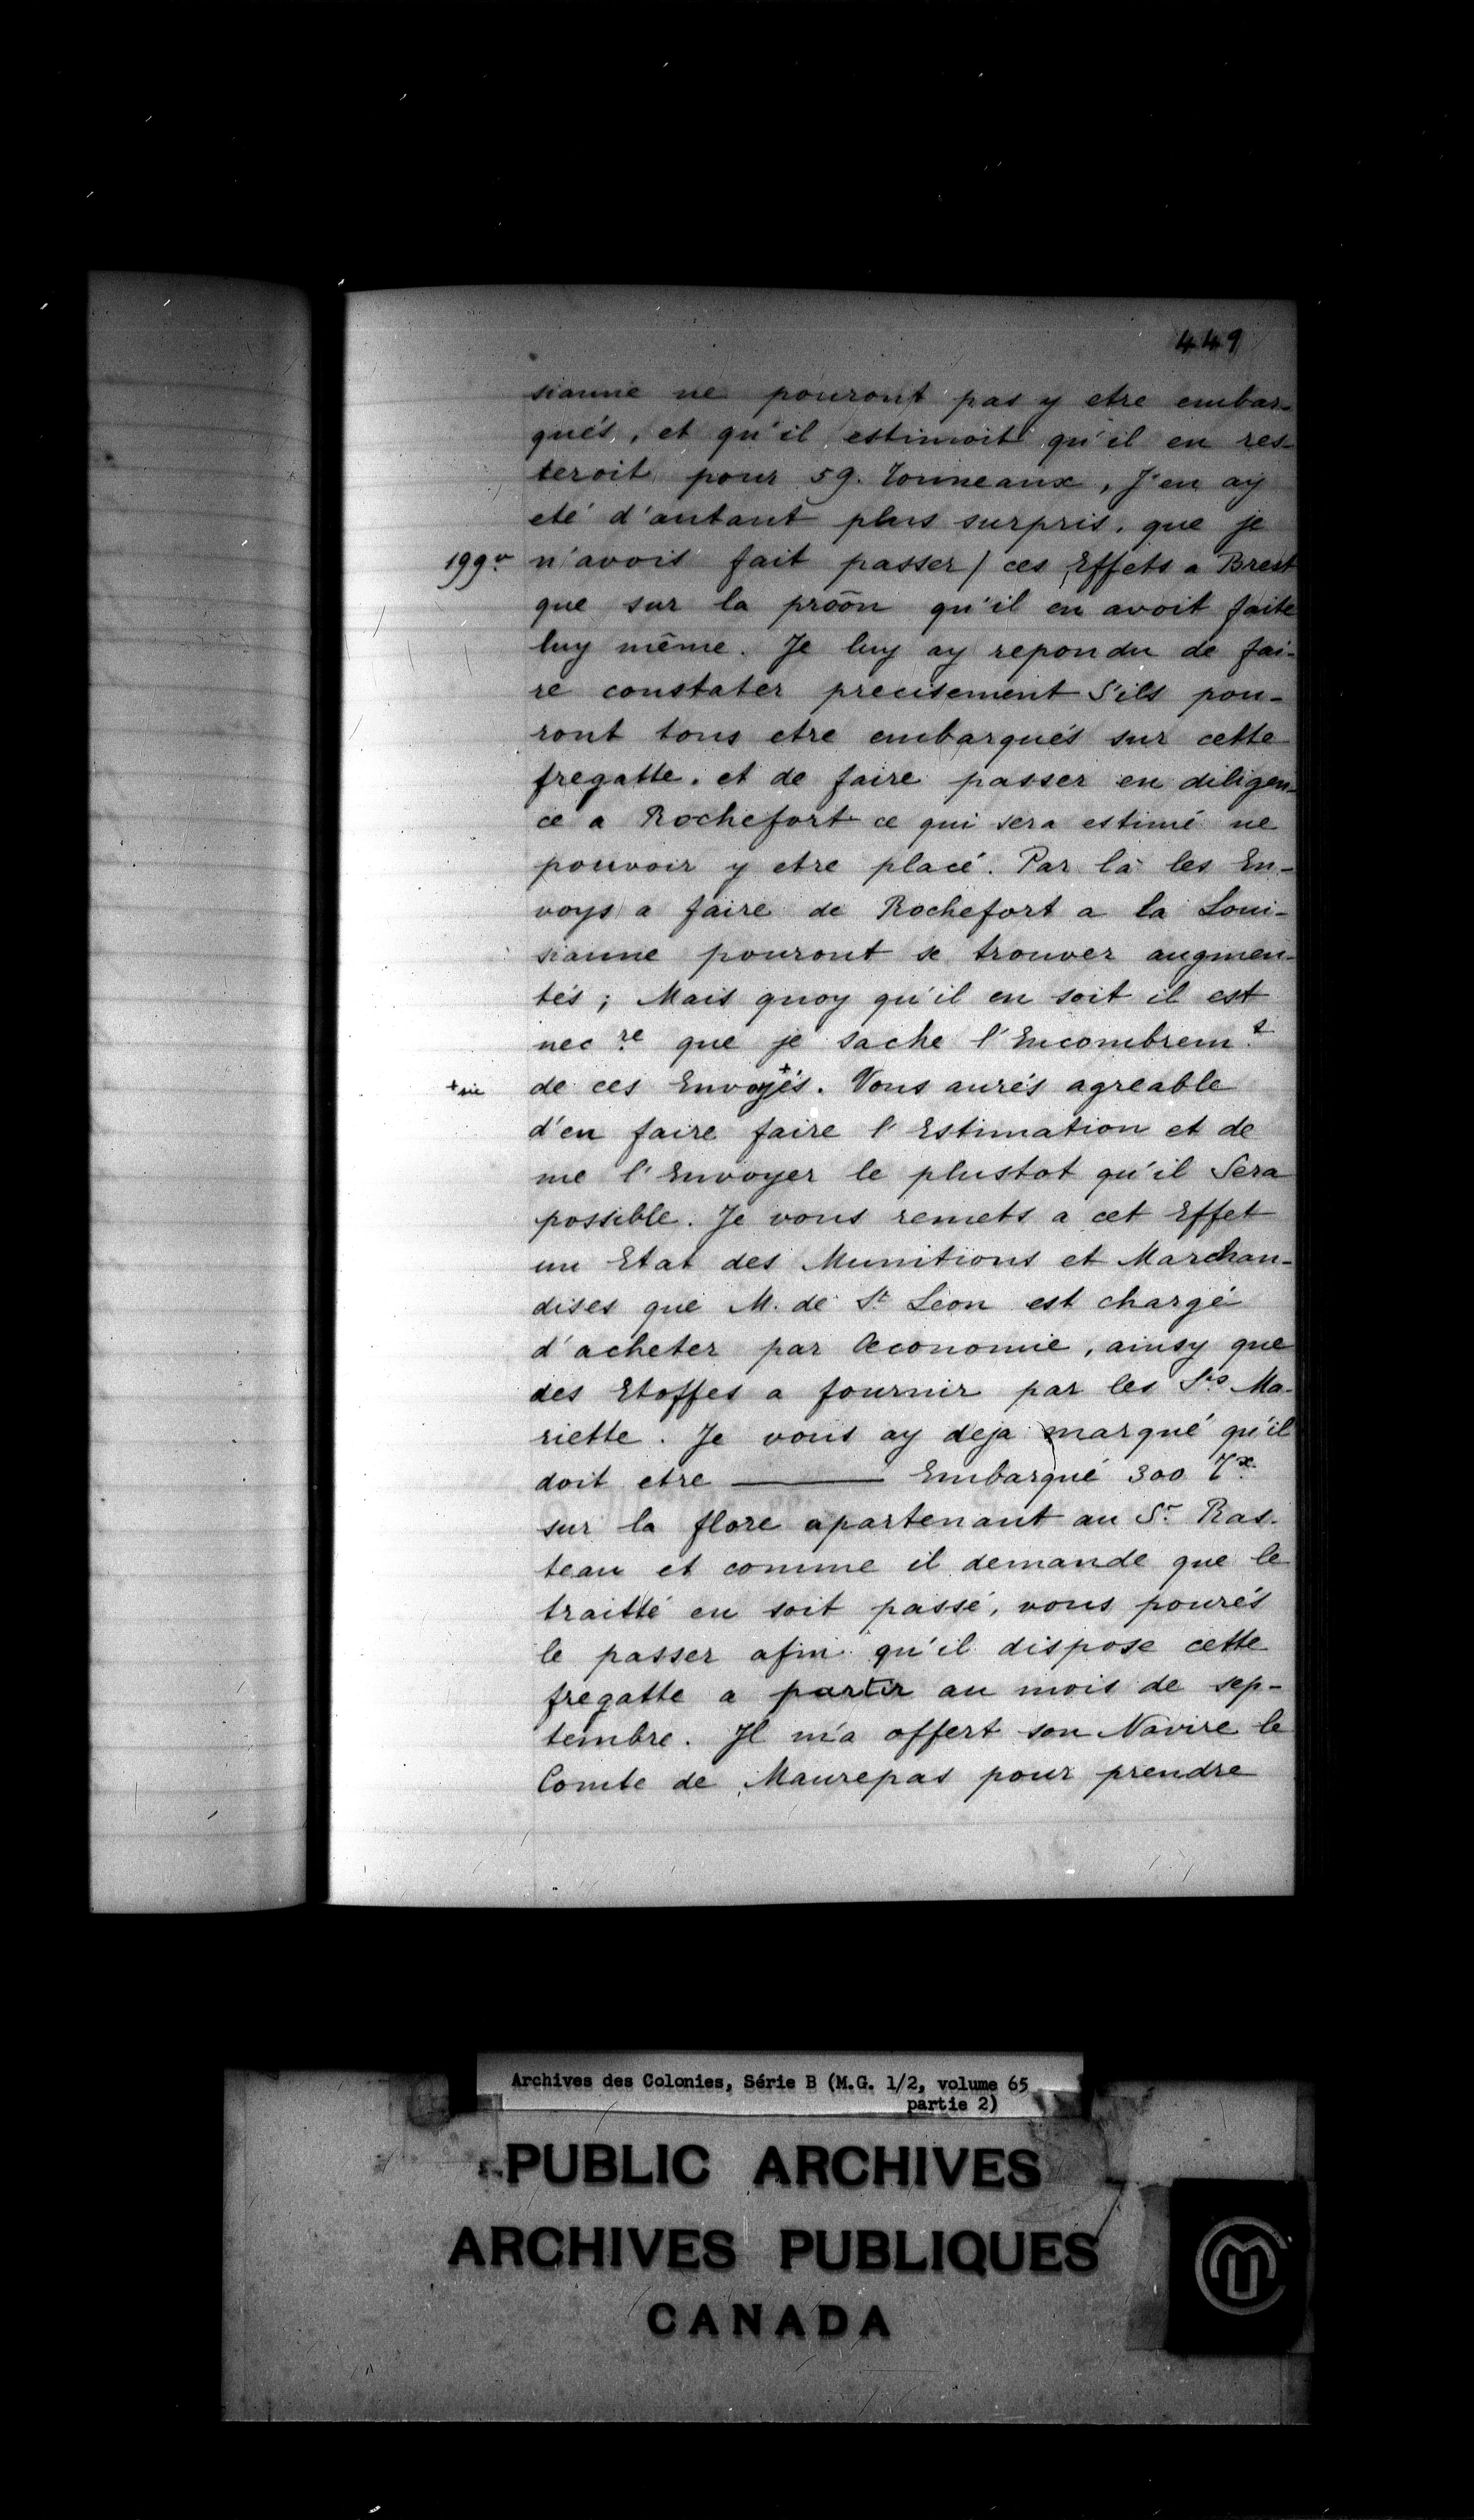 449
sianne ne pouront pas y etre embar-
qués, et qu'il estimoit qu'il en res-
teroit pour 59. Tonneaux, J'en ay
eté d'autant plus surpris, que je
199v. n'avois fait passer / ces Effets a Brest
que sur la prôôn qu'il en avoit faite
luy même. Je luy ay repondu de fai-
re constater precisement S'ils pou-
ront tous etre embarqués sur cette
fregatte. et de faire passer en diligen-
ce a Rochefort ce qui sera estimé ne
pouvoir y etre placé. Par là les En-
voys a faire de Rochefort a la Loui-
sianne pouront se trouver augmen-
tés ; Mais quoy qu'il en soit il est
necre que je sache l'Encombremt
+ sic de ces Envoyés+. Vous aurés agreable
d'en faire faire l'Estimation et de
me l'Envoyer le plustot qu'il Sera
possible. Je vous remets a cet Effet
un Etat des Munitions et Marchan-
dises que M. de St. Leon est chargé
d'acheter par Œconomie, ainsy que
des Etoffes a fournir par les Srs. Ma-
riette. Je vous ay deja marqué qu'il
doit etre ——— Embarqué 300 Tx.
sur la flore apartenant au Sr. Ras-
teau et comme il demande que le
traitté en soit passé, vous pourés
le passer afin qu'il dispose cette
fregatte a partir au mois de sep-
tembre. Il m'a offert son Navire le
Comte de Maurepas pour prendre
Archives des Colonies, Série B (M.G. 1/2, volume 65
partie 2)
PUBLIC ARCHIVES
ARCHIVES PUBLIQUES
CANADA